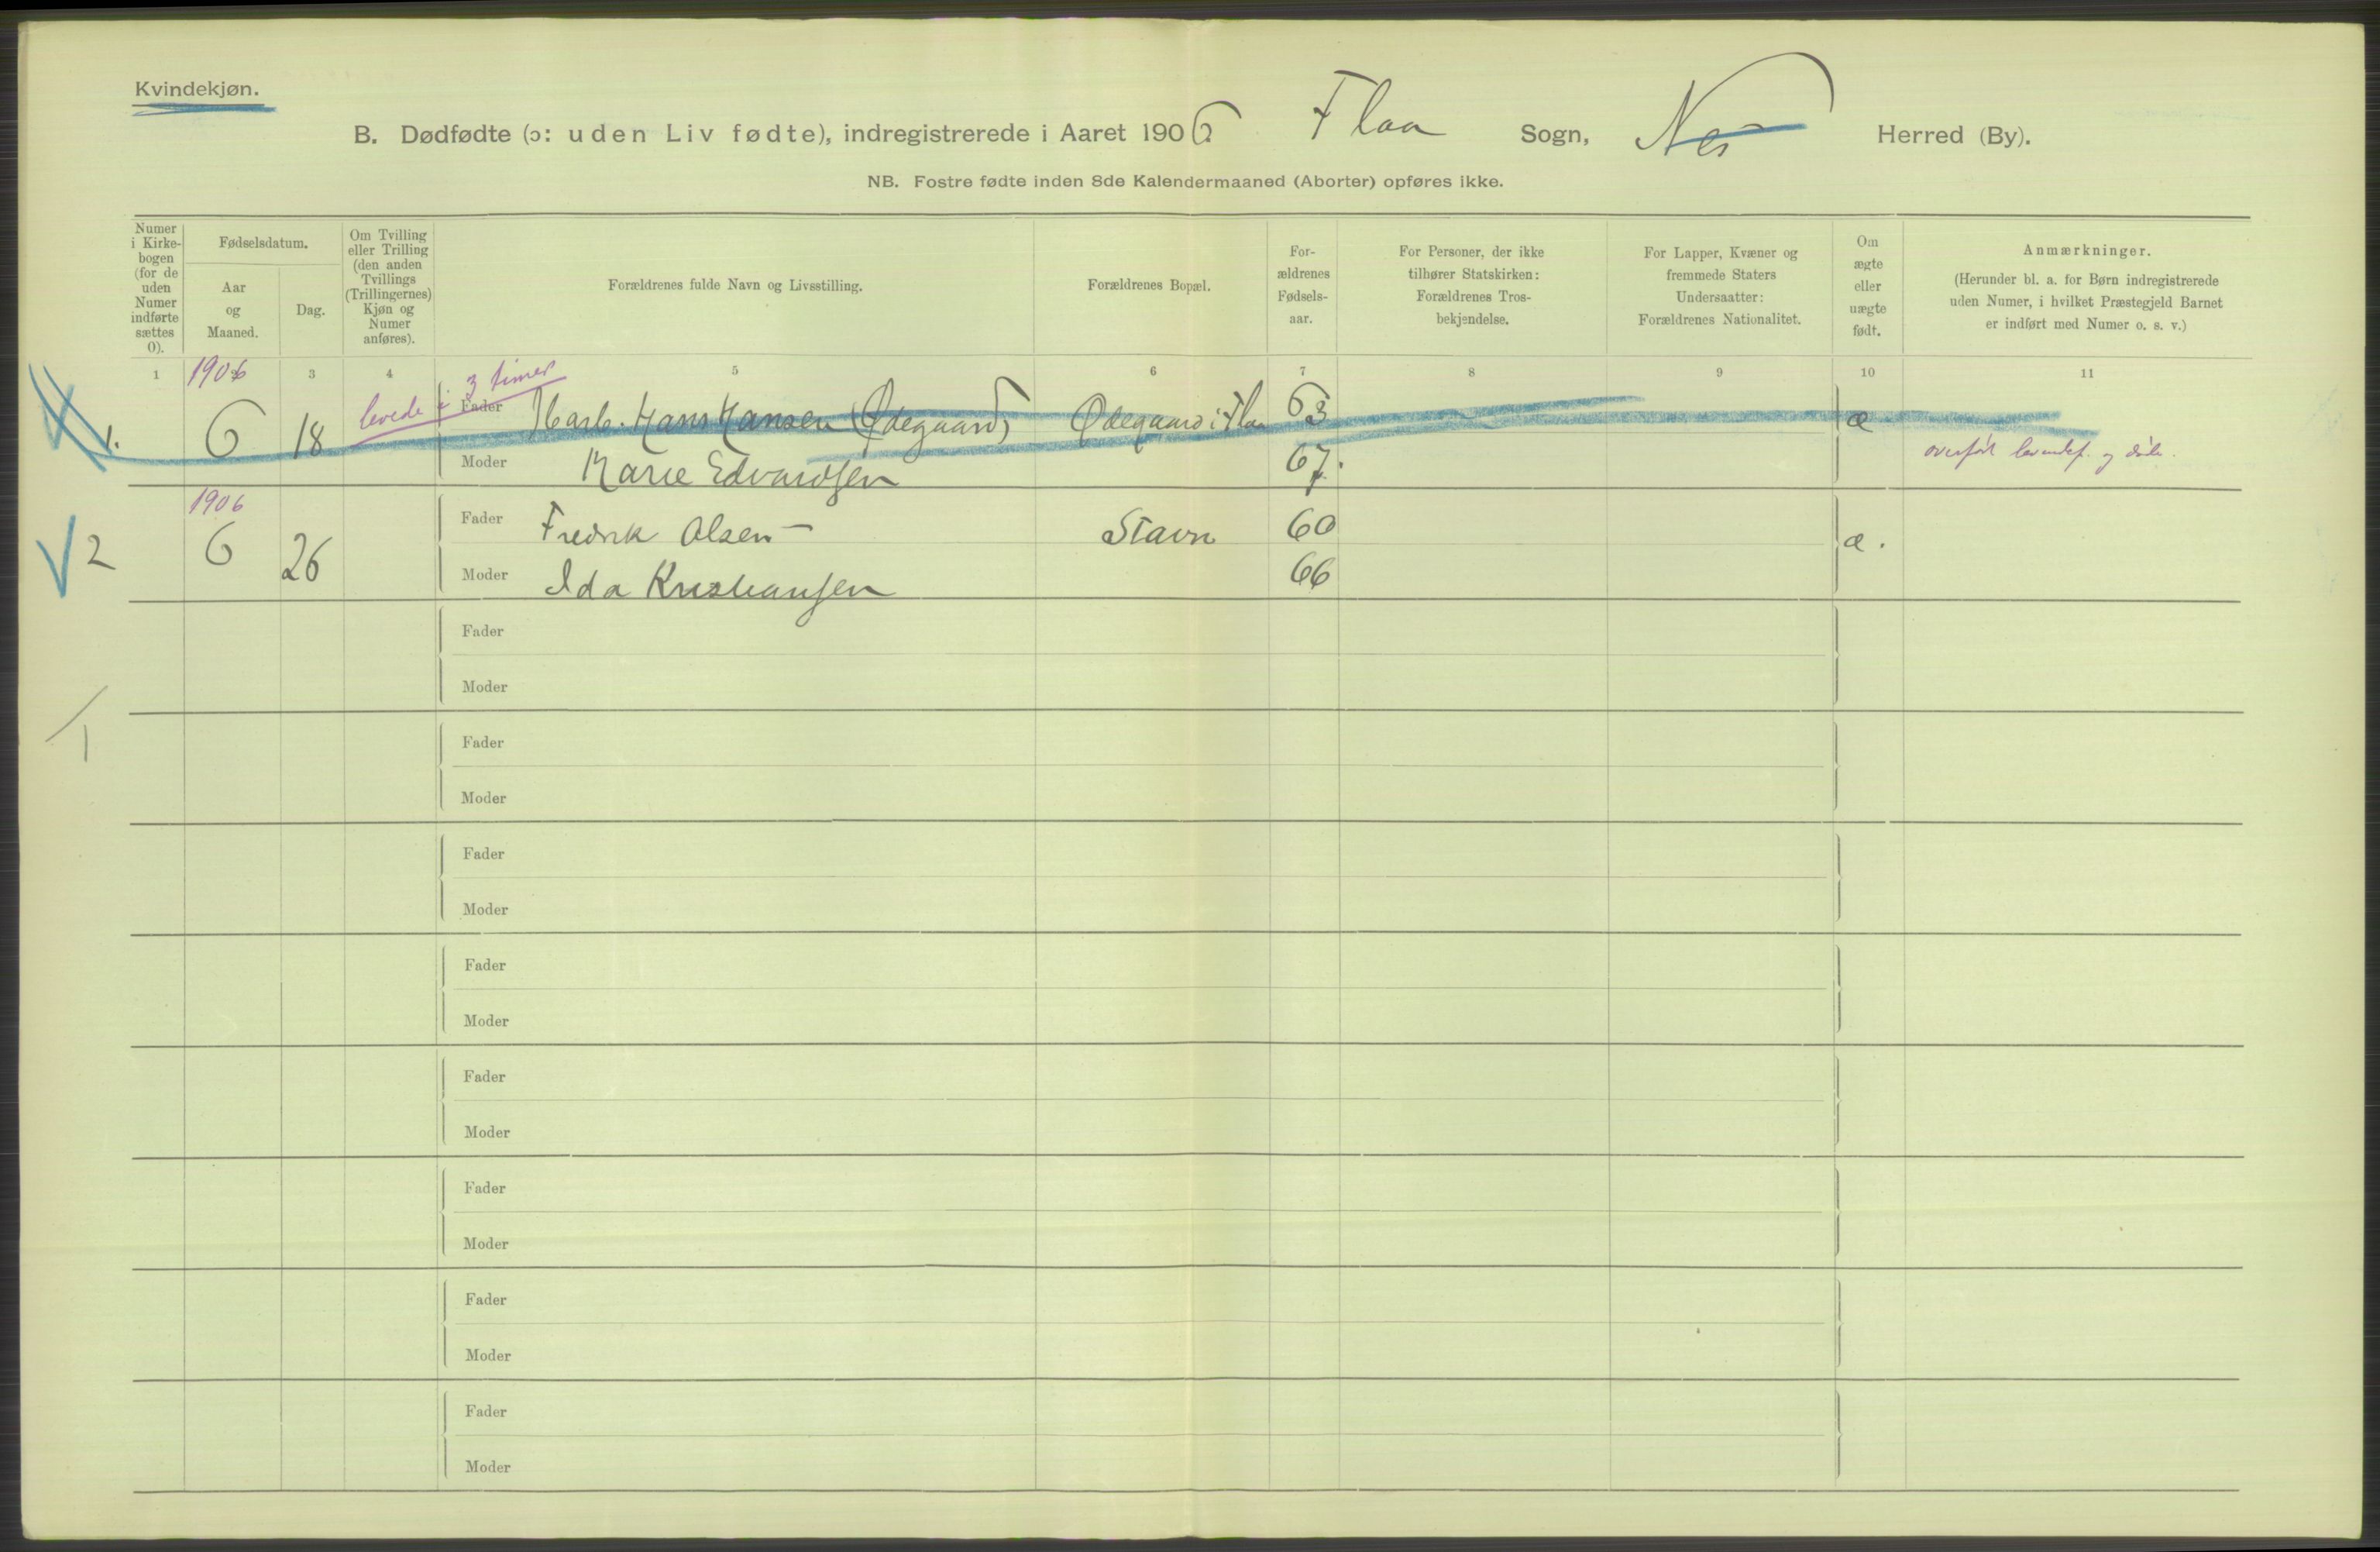 Kvindekjøn.
B. Dødfødte (ɔ: uden Liv fødte), indregistrerede i Aaret 1906. Flaa Sogn, Nes Herred (By).
NB. Fostre fødte inden 8de Kalendermaaned (Aborter) opføres ikke.
Numer i Kirke-bogen (for de uden Numer indførte sættes 0).
Fødselsdatum.
Aar og Maaned.
Dag.
Om Tvilling eller Trilling (den anden Tvillings (Trillingernes) Kjøn og Numer anføres).
Forældrenes fulde Navn og Livsstilling.
Forældrenes Bopæl.
For-ældrenes Fødsels-aar.
For Personer, der ikke tilhører Statskirken: Forældrenes Tros-bekjendelse.
For Lapper, Kvæner og fremmede Staters Undersaatter: Forældrenes Nationalitet.
Om ægte eller uægte født.
Anmærkninger.
(Herunder bl. a. for Børn indregistrerede uden Numer, i hvilket Præstegjeld Barnet er indført med Numer o. s. v.)
1 2 3 4 5 6 7 8 9 10 11
1906
levede i 3 timer
1. 6 18 Fader Hans Hansen (Ødegaard) Ødegaard i Flaa 63 æ
Moder Marie Edvardsen 67. overført levendef. og døde.
1906
2 6 26 Fader Fredrik Olsen Stavn 60 æ.
Moder Ida Kristiansen 66
Fader
Moder
1
Fader
Moder
Fader
Moder
Fader
Moder
Fader
Moder
Fader
Moder
Fader
Moder
Fader
Moder